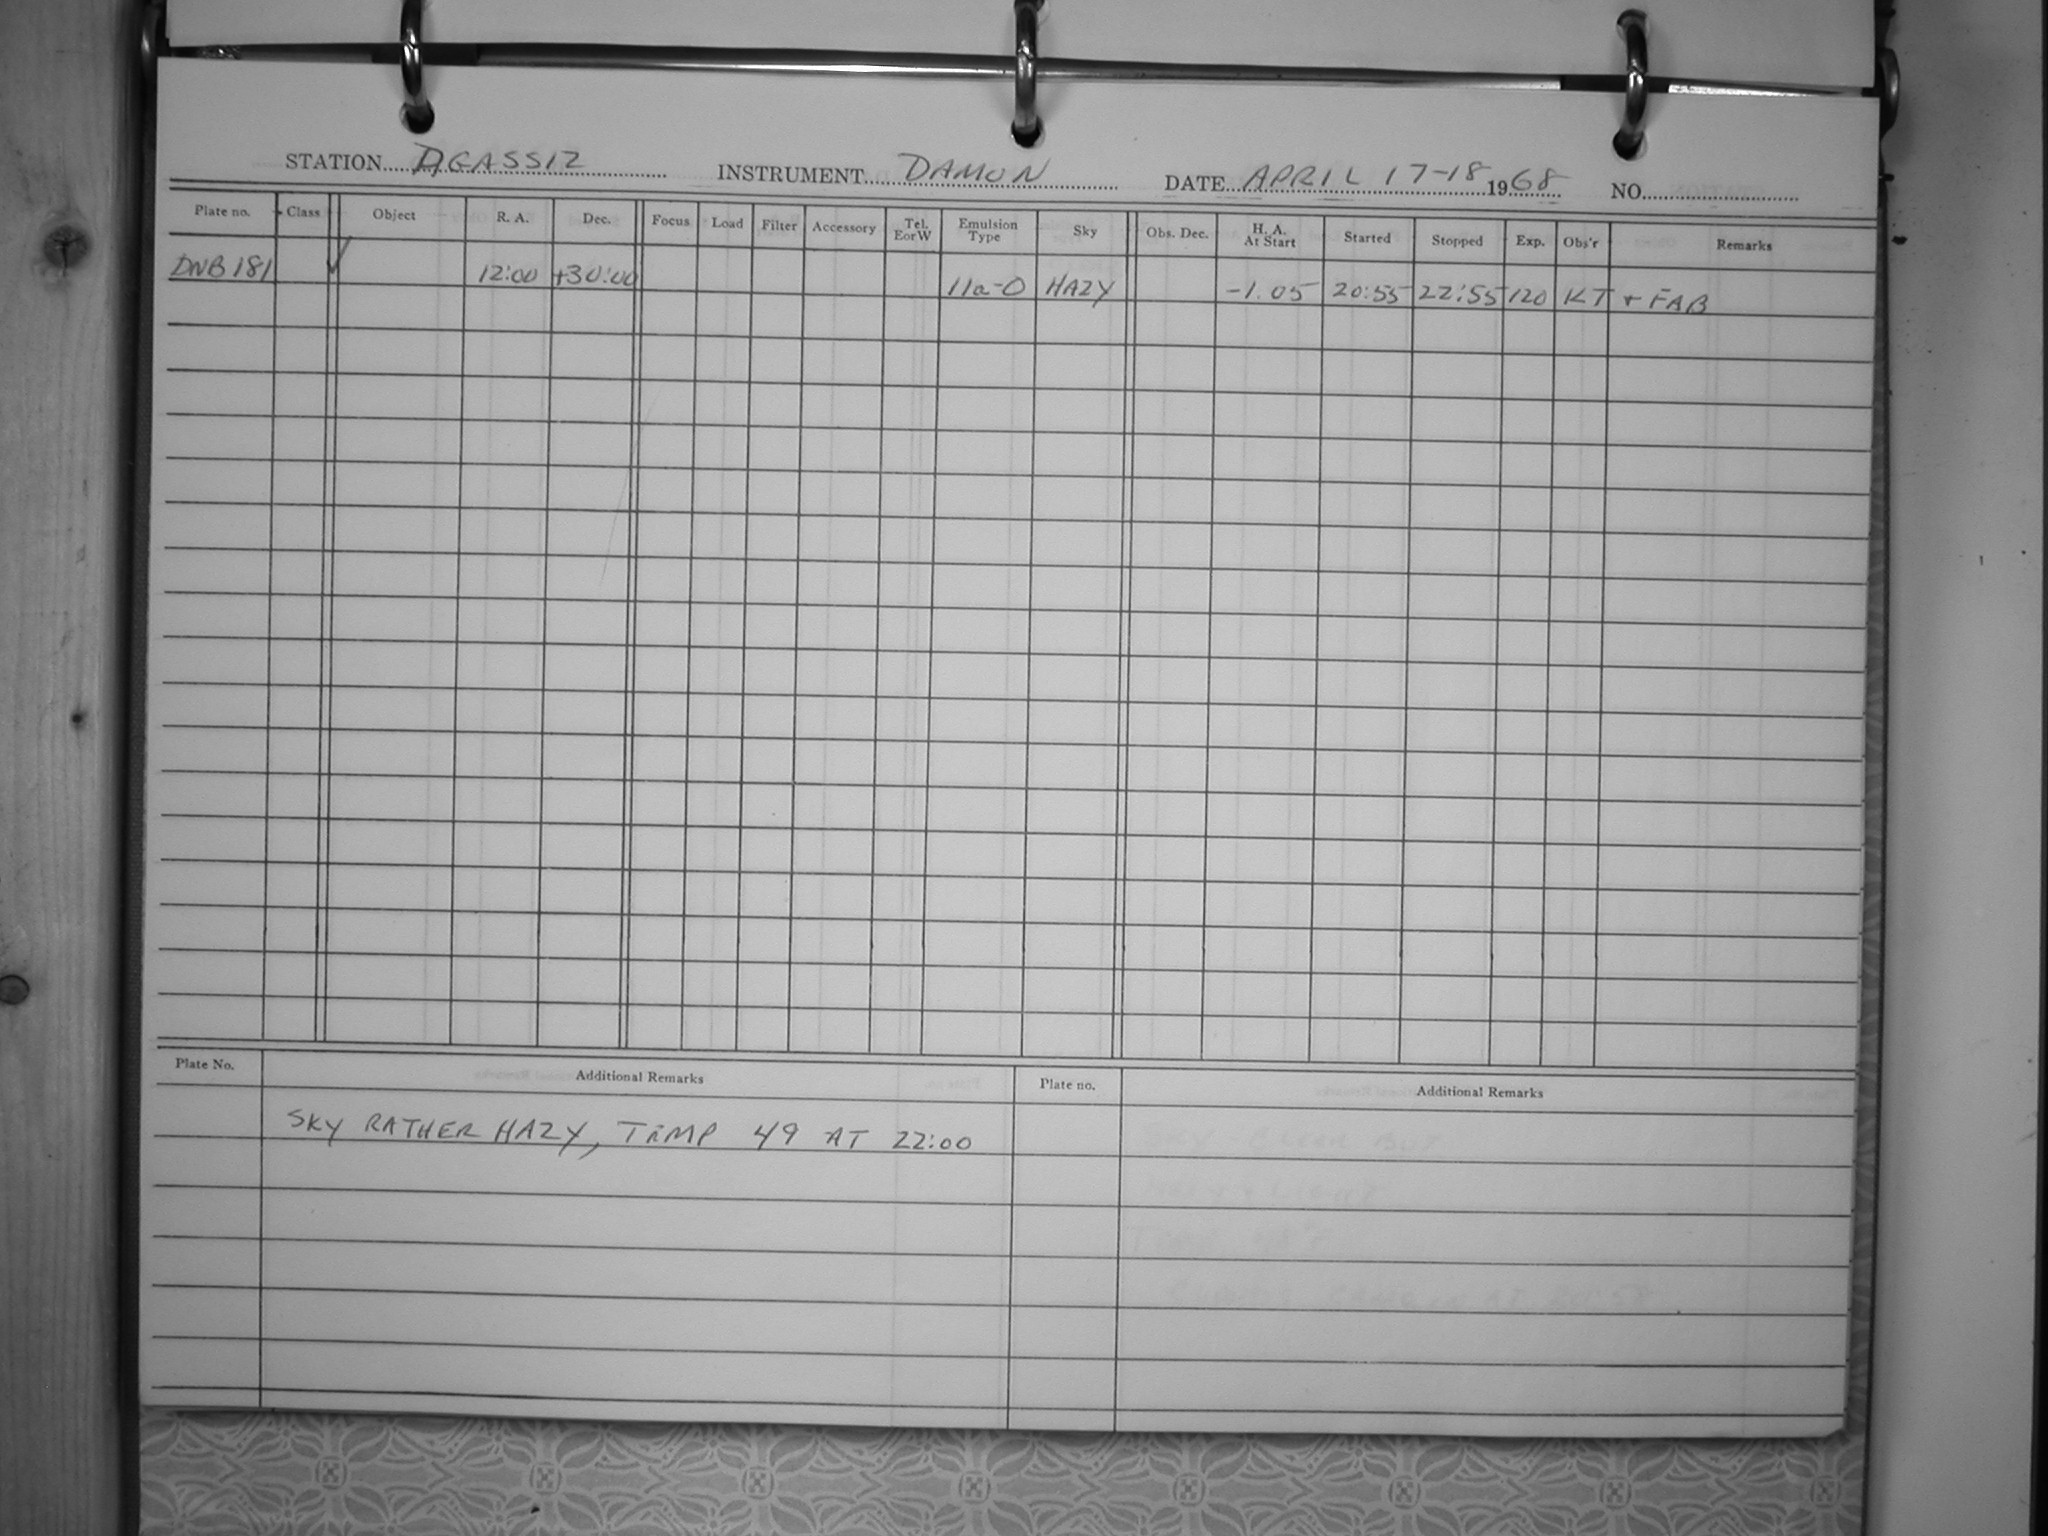 STATION AGASSIZ INSTRUMENT DAMON DATE APRIL 17-18 1968 NO.
Plate no. Class Object R. A. Dec. Focus Load Filter Accessory Tel. EorW Emulsion Type Sky Obs. Dec. H. A. At Start Started Stopped Exp. Obs'r Remarks
DNB 181 ✓ 12:00 +30:00 11a-O HAZY -1.05 20:55 22:55 120 KT + FAB
Plate No. Additional Remarks Plate no. Additional Remarks
SKY RATHER HAZY, TEMP 49 AT 22:00